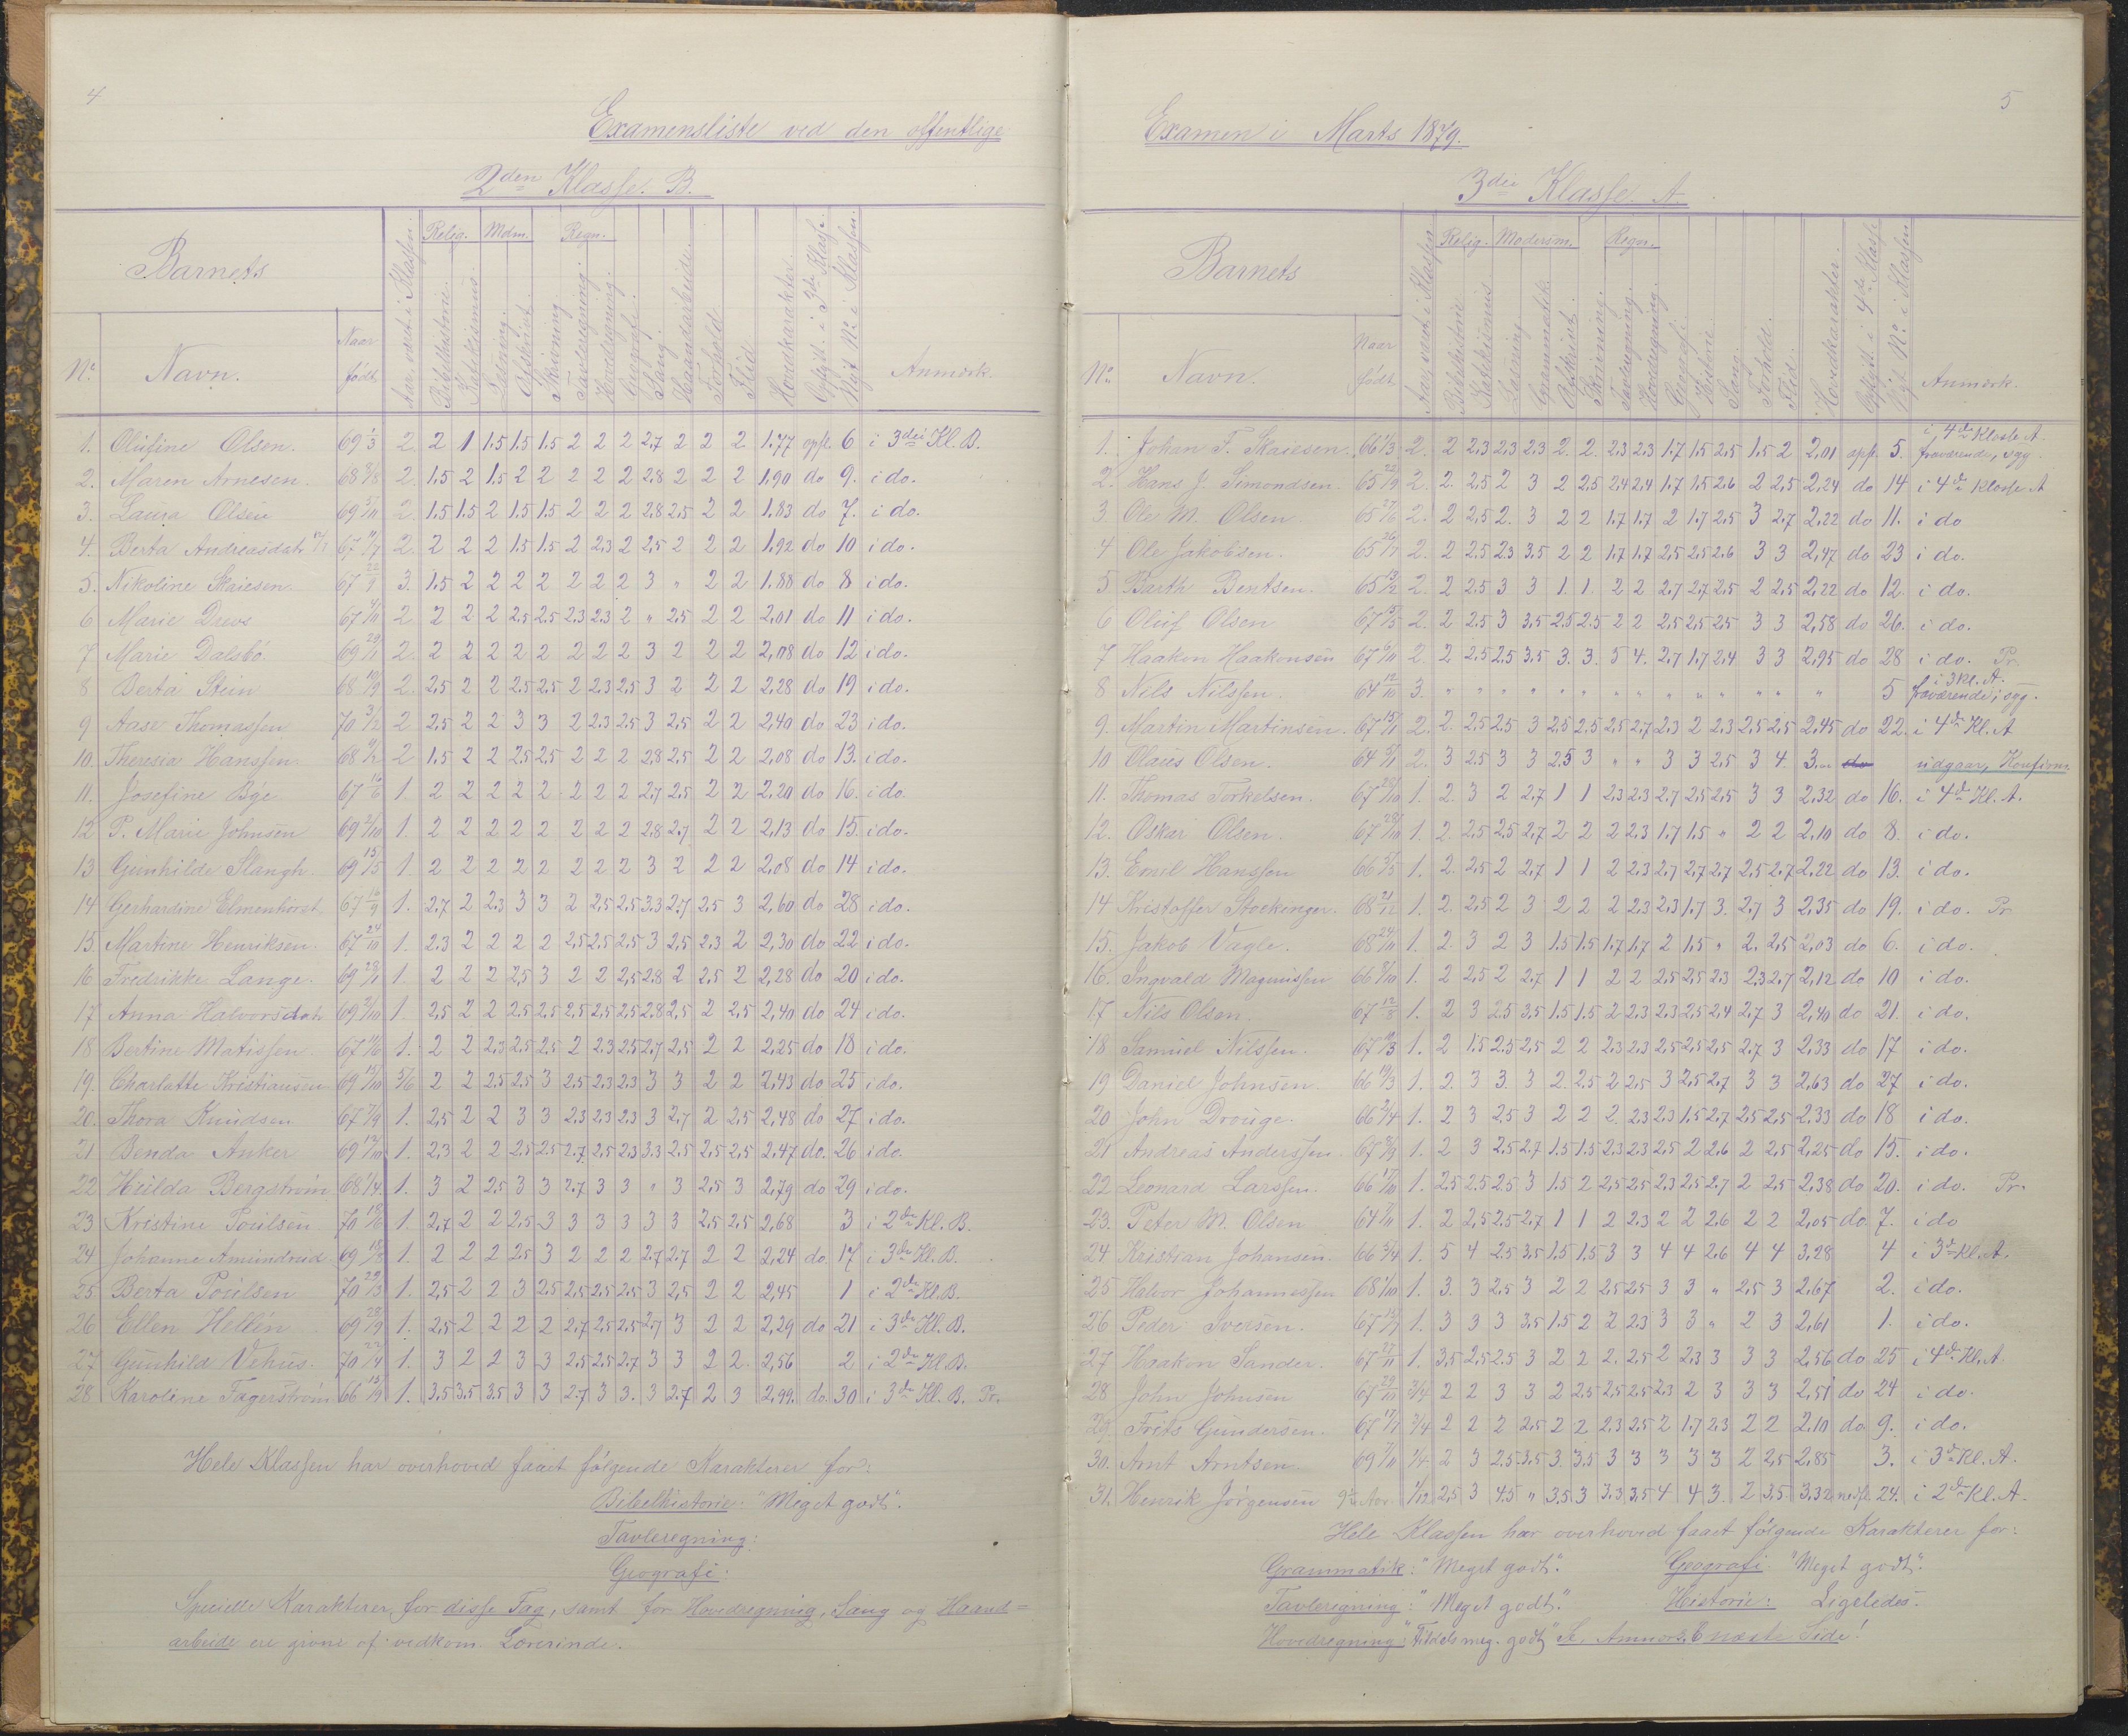 4
Examensliste ved den offentlige
2den Klasse. B.
Barnets
No. Navn. Naar født. Aar været i Klassen. Relig. Bibelhistorie. Katekismus Mdm. Læsning. Opskrivt. Skrivning Regn. Tavleregning. Hovedregning. Geografi. Sang. Haandarbeide. Forhold Flid Hovedkarakter. Opflytt. i 3die Klasse. Nyt No. i Klassen. Anmærk.
1. Olufine Olsen. 69 1/3 2. 2 1 1.5 1.5 1.5 2 2 2 2.7 2 2 2 1.77 opfl. 6 i 3die Kl. B.
2. Maren Arnesen. 68 3/8 2. 1.5 2 1.5 2 2 2 2 2 2.8 2 2 2 1.90 do 9. i do.
3. Laura Olsen 69 2. 1.5 1.5 2 1.5 1.5 2 2 2 2.8 2.5 2 2 1.83 do 7. i do.
4. Berta Andreasdatr. 67 2. 2 2 2 1.5 1.5 2 2.3 2 2.5 2 2 2 1.92 do 10 i do.
5. Nikoline Skaiesen. 67 22/9 3. 1.5 2 2 2 2 2 2 2 3 " 2 2 1.88 do 8 i do.
6 Marie Drews 67 2. 2 2 2 2.5 2.5 2.3 2.3 2 " 2.5 2 2 2,01 do 11 i do.
7 Marie Dalsbö. 69 2. 2 2 2 2 2 2 2 2 3 2 2 2 2,08 do 12 i do.
8 Berta Stein 68 2. 2.5 2 2 2.5 2.5 2 2.3 2.5 3 2 2 2 2.28 do 19 i do.
9 Aase Thomassen 70 3/12 2 2.5 2 2 3 3 2 2.3 2.5 3 2.5 2 2 2,40 do 23 i do.
10. Theresia Hanssen 68 2 1.5 2 2 2.5 2.5 2 2 2 2.8 2.5 2 2 2,08 do 13. i do.
11. Josefine Bÿe 67 16/6 1. 2 2 2 2 2 2 2 2 2.7 2.5 2 2 2,20 do 16. i do.
12 P. Marie Johnsen 69 2/10 1. 2 2 2 2 2 2 2 2 2.8 2.7 2 2 2,13 do 15. i do.
13 Gunhilde Slangh. 69 15/5 1. 2 2 2 2 2 2 2 2 3 2 2 2 2,08 do 14 i do.
14 Gerhardine Elmenhorst 67 16/9 1. 2.7 2 2.3 3 3 2 2.5 2.5 3.3 2.7 2.5 3 2,60 do 28 i do.
15 Martine Henriksen. 67 24/10 1. 2.3 2 2 2 2 2.5 2.5 2.5 3 2.5 2.3 2 2,30 do 22 i do.
16 Fredrikke Lange. 69 28/1 1. 2 2 2 2.5 3 2 2 2.5 2.8 2 2.5 2 2,28 do 20 i do.
17 Anna Halvorsdatr 69 2/10 1. 2.5 2 2 2.5 2.5 2.5 2.5 2.5 2.8 2.5 2 2.5 2,40 do 24 i do.
18 Bertine Matissen 67 11/6 1. 2 2 2.3 2.5 2.5 2 2.3 2.5 2.7 2.5 2 2 2.25 do 18 i do.
19. Charlotte Kristiansen 69 15/10 5/6 2 2 2.5 2.5 3 2.5 2.3 2.3 3 3 2 2 2,43 do 25 i do.
20. Thora Knudsen 67 7/9 1. 2.5 2 2 3 3 2.3 2.3 2.3 3 2.7 2 2.5 2,48 do 27 i do.
21 Benda Anker 69 12/10 1. 2.3 2 2 2.5 2.5 2.7 2.5 2.3 3.3 2.5 2.5 2.5 2,47 do. 26 i do.
22 Hulda Bergström 68 1/4 1. 3 2 2.5 3 3 2.7 3 3 " 3 2.5 3 2,79 do 29 i do.
23 Kristine Poulsen 70 18/6 1. 2.7 2 2 2.5 3 3 3 3 3 3 2.5 2.5 2,68 3 i 2den Kl. B.
24 Johanne Amundrud 69 1. 2 2 2 2.5 3 2 2 2 2.7 2.7 2 2 2,24 do. 17 i 3die Kl. B.
25 Berta Poulsen 70 29/3 1. 2.5 2 2 3 2.5 2.5 2.5 2.5 3 2.5 2 2 2,45 1 i 2den Kl. B.
26 Ellen Hellén 69 28/9 1. 2.5 2 2 2 2 2.7 2.5 2.5 2.7 3 2 2 2,29 do 21 i 3die Kl. B.
27 Gunhild Vehus. 70 22/4 1. 3 2 2 3 3 2.5 2.5 2.7 3 3 2 2 2,56 2 i 2den Kl. B.
28 Karoline Fagerström 66 15/9 1. 3.5 3.5 3.5 3 3 2.7 3 3 3 2.7 2 3 2,99. do. 30 i 3die Kl. B. Pr.
Hele Klassen har overhoved faaet følgende Karakterer for:
Bibelhistorie: "Meget godt".
Tavleregning:
Geografi:
Specielle Karakterer for disse Fag, samt for Hovedregning, Sang og Haand=
arbeide ere givne af vedkom. Lærerinde.
5
Examen i Marts 1879.
3die Klasse. A.
Barnets
No. Navn. Naar født. Aar været i Klassen Relig. Bibelhistorie Katekismus Modersm. Læsning Grammatik Opskrivt. Skrivning. Regn. Tavleregning. Hovedregning. Geografi. Historie Sang. Forhold. Flid. Hovedkarakter. Opflytt. i 4de Klasse. Nyt No. i Klassen Anmærk.
1. Johan F. Skaiesen. 66 1/3 2. 2 2.3 2.3 2.3 2. 2. 2.3 2.3 1.7 1.5 2.5 1.5 2 2,01 opfl. 5. i 4de Klasse A. fraværende, syg.
2. Hans J. Simondsen 65 2. 2. 2.5 2 3 2 2.5 2.4 2.4 1.7 1.5 2.6 2 2.5 2,24 do 14 i 4de Klasse A
3. Ole M. Olsen 65 27/6 2. 2 2.5 2. 3 2 2 1.7 1.7 2 1.7 2.5 3 2.7 2,22 do 11. i do
4 Ole Jakobsen. 65 2. 2 2.5 2.3 3.5 2 2 1.7 1.7 2.5 2.5 2.6 3 3 2,47 do 23 i do.
5 Barth Bentsen. 65 13/2 2. 2 2.5 3 3 1. 1. 2 2 2.7 2.7 2.5 2 2.5 2,22 do 12. i do.
6 Oluf Olsen 67 15/5 2. 2 2.5 3 3.5 2.5 2.5 2 2 2.5 2.5 2.5 3 3 2,58 do 26. i do.
7 Haakon Haakonsen 67 2. 2 2.5 2.5 3.5 3. 3. 5 4. 2.7 1.7 2.4 3 3 2,95 do 28 i do. Pr.
8 Nils Nilssen. 64 12/10 3. " " " " " " " " " " " " " " 5 i 3 Kl. A. fraværende, syg.
9. Martin Martinsen. 67 2. 2. 2.5 2.5 3 2.5 2.5 2.5 2.7 2.3 2 2.3 2.5 2.5 2,45 do 22. i 4de Kl. A
10 Olaus Olsen. 64 2. 3 2.5 3 3 2.5 3 " " 3 3 2.5 3 4. 3,00 do udgaar, Konfirm.
11. Thomas Torkelsen. 67 28/10 1. 2. 3 2 2.7 1 1 2.3 2.3 2.7 2.5 2.5 3 3 2,32 do 16. i 4de Kl. A.
12. Oskar Olsen. 67 28/10 1. 2. 2.5 2.5 2.7 2 2 2 2.3 1.7 1.5 " 2 2 2,10 do 8. i do.
13. Emil Hanssen 66 1. 2. 2.5 2 2.7 1 1 2 2.3 2.7 2.7 2.7 2.5 2.7 2,22 do 13. i do.
14 Kristoffer Stockinger. 68 21/12 1. 2. 2.5 2 3 2 2 2 2.3 2.3 1.7 3. 2.7 3 2,35 do 19. i do. Pr
15. Jakob Vagle. 68 24/10 1. 2. 3 2 3 1.5 1.5 1.7 1.7 2 1.5 " 2. 2.5 2,03 do 6. i do.
16. Ingvald Magnussen 66 1. 2 2.5 2 2.7 1 1 2 2 2.5 2.5 2.3 2.3 2.7 2,12 do 10 i do.
17 Nils Olsen. 67 12/8 1. 2 3 2.5 3.5 1.5 1.5 2 2.3 2.3 2.5 2.4 2.7 3 2,40 do 21. i do.
18 Samuel Nilssen. 67 1. 2 1.5 2.5 2.5 2 2 2.3 2.3 2.5 2.5 2.5 2.7 3 2,33 do 17 i do.
19 Daniel Johnsen. 66 19/3 1. 2. 3 3. 3 2. 2.5 2 2.5 3 2.5 2.7 3 3 2,63 do 27 i do.
20 John Drouge. 66 2/4 1. 2 3 2.5 3 2 2 2. 2.3 2.3 1.5 2.7 2.5 2.5 2,33 do 18 i do.
21 Andreas Anderssen. 67 1. 2 3 2.5 2.7 1.5 1.5 2.3 2.3 2.5 2 2.6 2 2.5 2,25 do 15. i do.
22 Leonard Larssen. 66 17/10 1. 2.5 2.5 2.5 3 1.5 2 2.5 2.5 2.3 2.5 2.7 2 2.5 2,38 do 20. i do. Pr.
23. Peter M. Olsen 64 1. 2 2.5 2.5 2.7 1 1 2 2.3 2 2 2.6 2 2 2,05 do. 7. i do
24 Kristian Johansen. 66 5/4 1. 5 4 2.5 3.5 1.5 1.5 3 3 4 4 2.6 4 4 3,28 4 i 3die Kl. A.
25 Halvor Johannessen 68 1/10 1. 3. 3 2.5 3 2 2 2.5 2.5 3 3 " 2.5 3 2,67 2. i do.
26 Peder Iversen. 67 1. 3 3 3 3.5 1.5 2 2 2.3 3 3 " 2 3 2,61 1. i do.
27 Haakon Sander. 67 27/11 1. 3.5 2.5 2.5 3 2 2 2. 2.5 2 2.3 3 3 3 2,56 do 25 i 4de Kl. A
28 John Johnsen 67 29/11 3/4 2 2 3 3 2 2.5 2.5 2.5 2.3 2 3 3 3 2,51 do 24 i do.
29. Frits Gundersen. 67 3/4 2 2 2 2.5 2 2 2.3 2.5 2 1.7 2.3 2 2 2,10 do. 9. i do.
30. Arnt Arntsen. 69 1/4 2 3 2.5 3.5 3 3.5 3 3 3 3 3 2 2.5 2,85 3. i 3die Kl. A.
31. Henrik Jörgensen 9½ Aar 1/12 2.5 3 4.5 " 3.5 3 3.3 3.5 4 4 3. 2 3.5 3,32 nedfl. 24. i 2den Kl. A.
Hele Klassen har overhoved faaet følgende Karakterer for:
Grammatik: "Meget godt". Geografi "Meget godt".
Tavleregning: "Meget godt". Historie: Ligeledes.
Hovedregning: "Tildels meg. godt" Se Anmærk. næste Side!